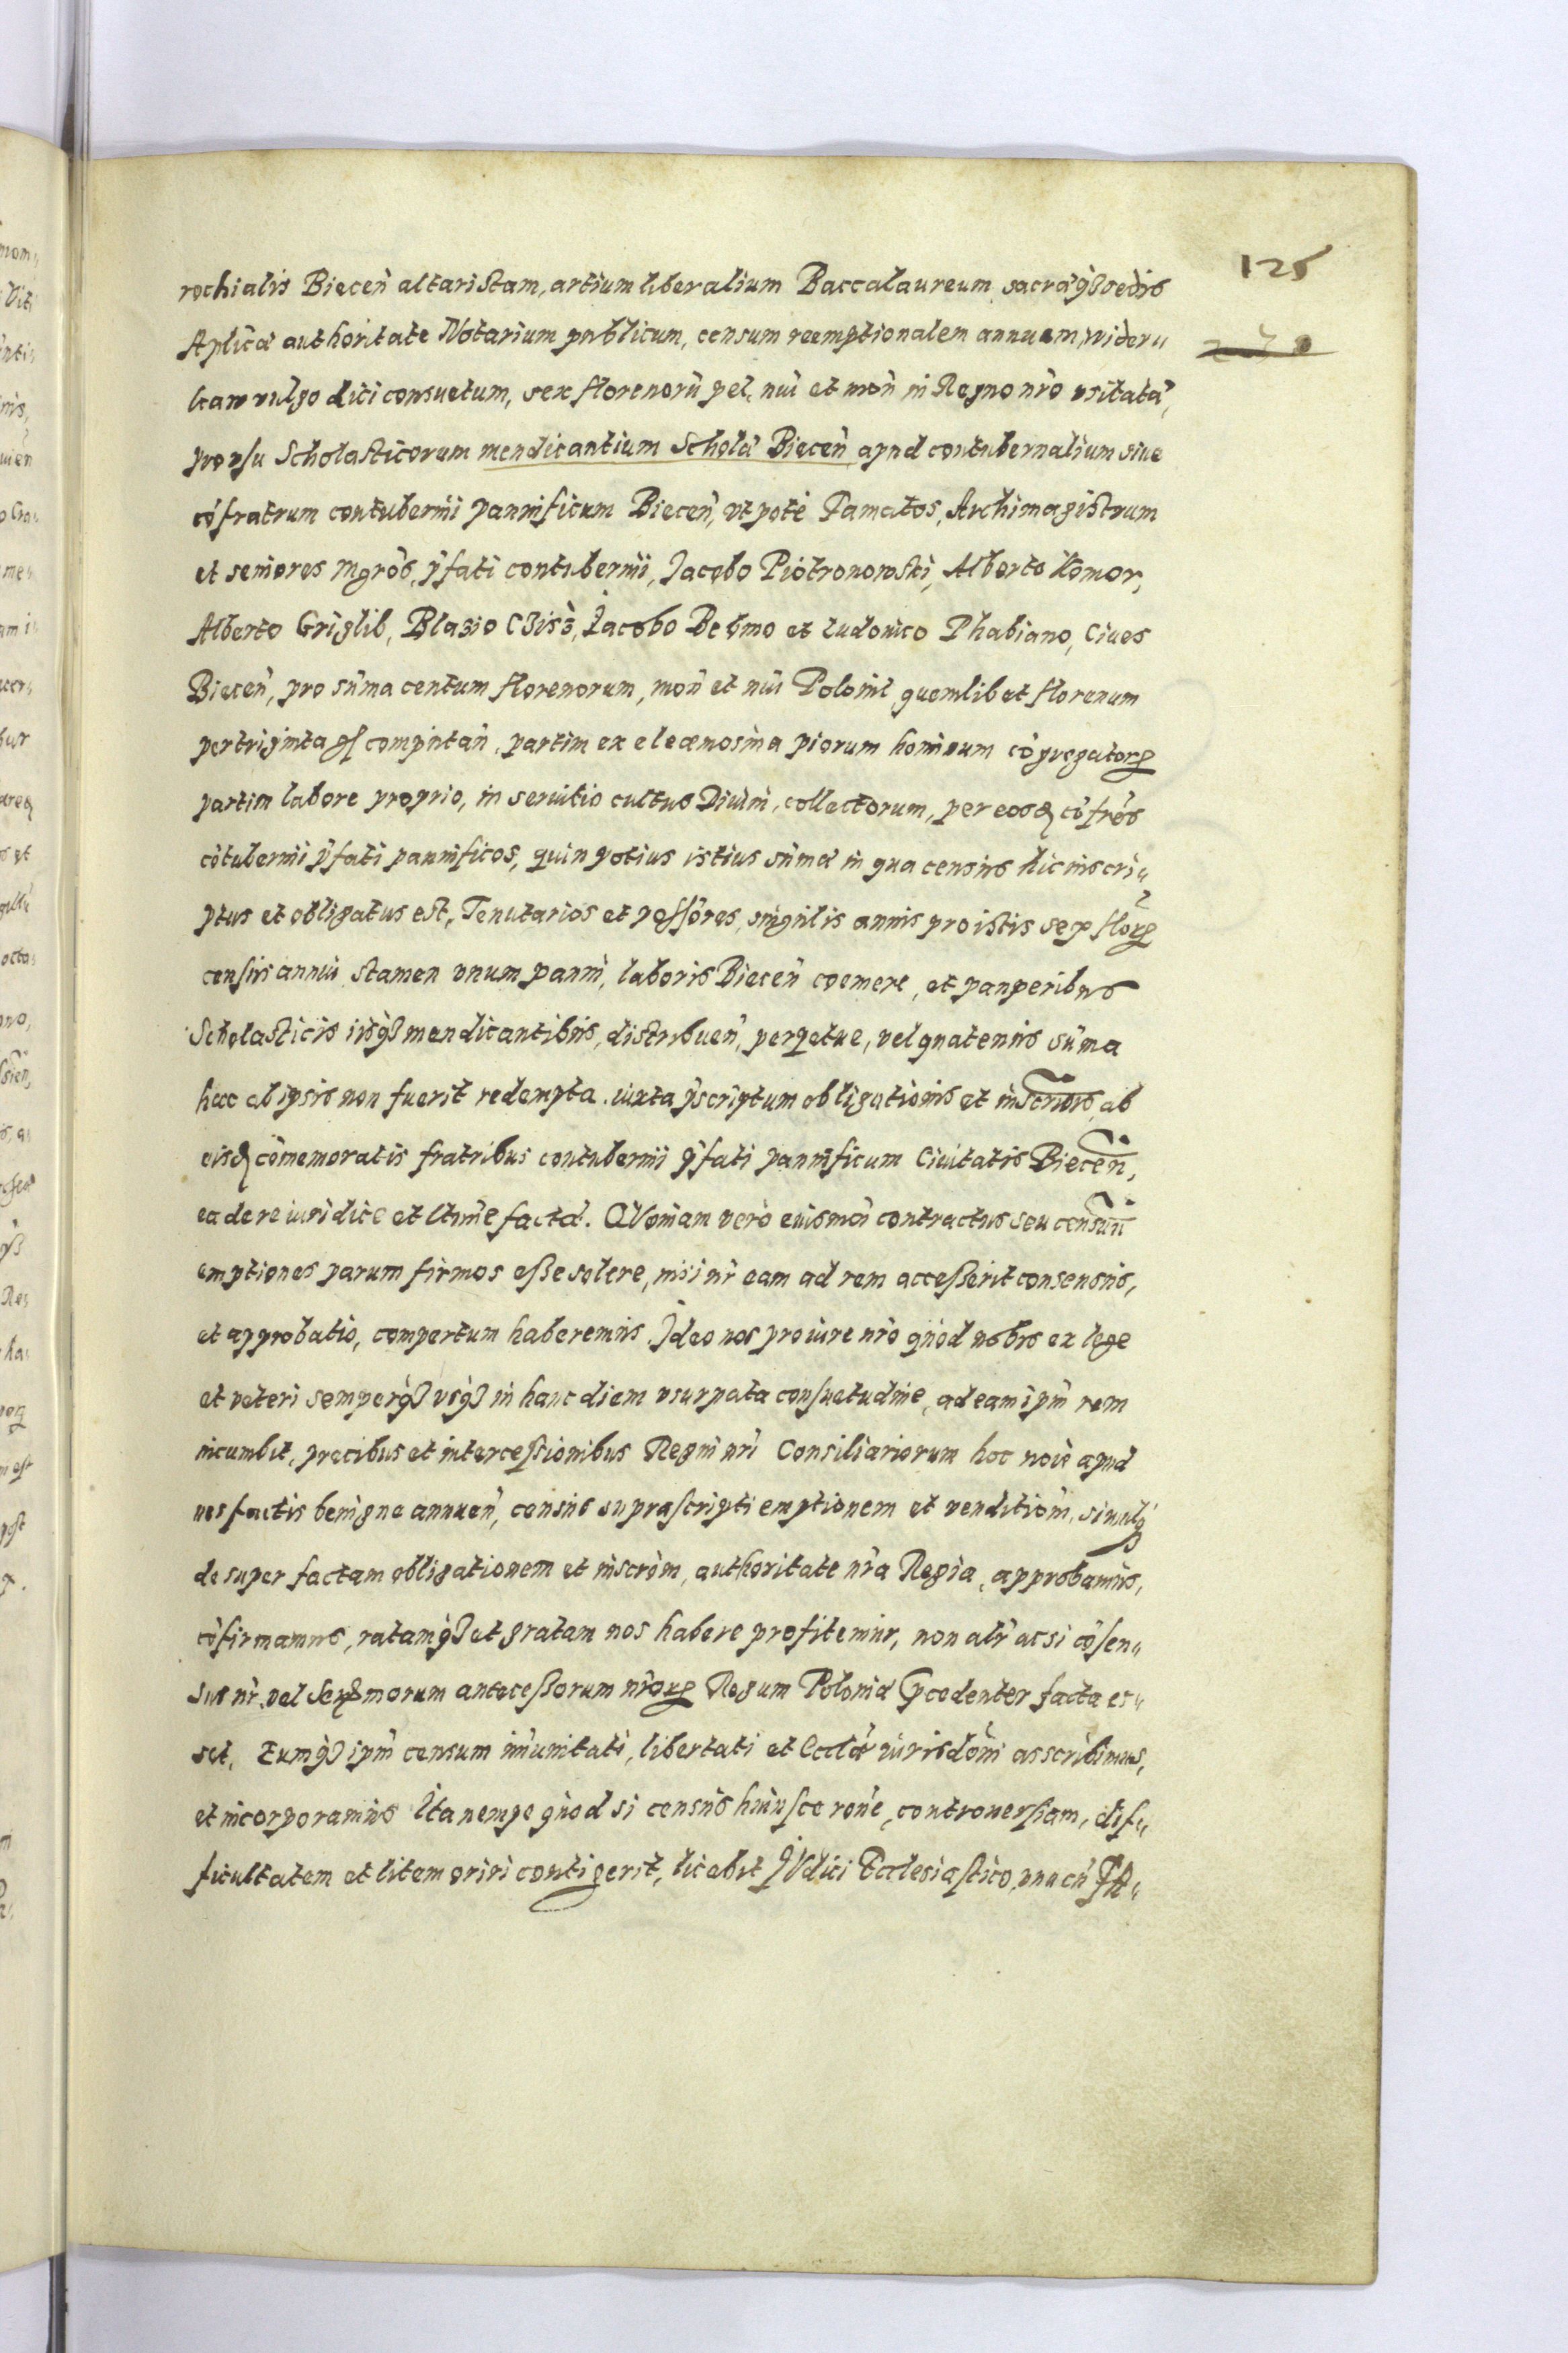 125
rochialis Biecen̄ altaristam, artium liberalium Baccalaureum, sacræq́ꝫ sedis
Aplicæ authoritate Notarium publicum, censum reemptionalem annuum, wideru
kaw vulgo dici consuetum, sex florenorū pec. nūi et mon̄ in Regno nr̄o vsitatæ,
pro vsu Scholasticorum mendicantium Scholæ Biecen̄ apud contubernalium siue
cōfratrum contubernii pannificum Biecen̄, vt pote Famatos, Archimagistrum
et seniores Mgrōs, p̄fati contubernii, Jacobo Piotronowski, Alberto Komor,
Alberto Griglib, Blasio Czisz, Jacobo Behmo et Ludouico Phabiano, Ciues
Biecen̄, pro sūma centum florenorum, mon̄ et nūi Poloni, quemlibet florenum
per triginta gſ computan̄, partim ex eleæmosina piorum hominum cōgregatorꝝ
partim labore proprio, in seruitio cultus Diuini, collectorum, per eosd cōfrēs
cōtubernii p̄fati pannificos, quin potius istius sūmæ in qua census hic inscri„
ptus et obligatus est, Tenutarios et posſōres, singulis annis pro istis sex florꝝ
censūs annui stamen vnum panni, laboris Biecen̄ coemere, et pauperibus
Scholasticis iisq́ꝫ mendicantibus, distribuen̄, perpetue, vel quatenus sūma
hæc ab ipsis non fuerit redempta. iuxta p̄scriptum obligationis et inscr̄ois, ab
eisd cōmemoratis fratribus contubernii p̄fati pannificum Ciuitatis Biecen̄,
ea de re iuridice et ltīme facta. QVoniam verò eiusmōi contractus seu censuū
emptiones parum firmos eße solere, nisi nr̄ eam ad rem acceßerit consensus,
et approbatio, compertum haberemus. Ideo nos pro iure nr̄o quod nobis ex lege
et veteri semperq́ꝫ vsq́ꝫ in hanc diem vsurpata consuetudine, ad eam ipm̄ rem
incumbit, precibus et intercessionibus Regni nr̄i Consiliariorum hoc noīe apud
nos factis benigne annuen̄, census suprascripti emptionem et venditiōm, simulq́
de super factam obligationem et inscrōm, authoritate nr̄a Regia, approbamus,
cōfirmamus, ratamq́ꝫ et gratam nos habere profitemur, non alr̄ ac si cōsen„
sus nr̄ vel Serꝫmorum anteceßorum nr̄orꝝ Regum Poloniæ p̄cedenter facta es„
set, Eumq́ꝫ ipm̄ censum im̄unitati, libertati et Ecclæ iurisdōni asscribimus,
et incorporamus Ita nempe quod si censūs huiusce rōne, controuersiam, dif„
ficultatem et litem oriri contigerit, licebit IVdici Ecclesiastico, vna cū